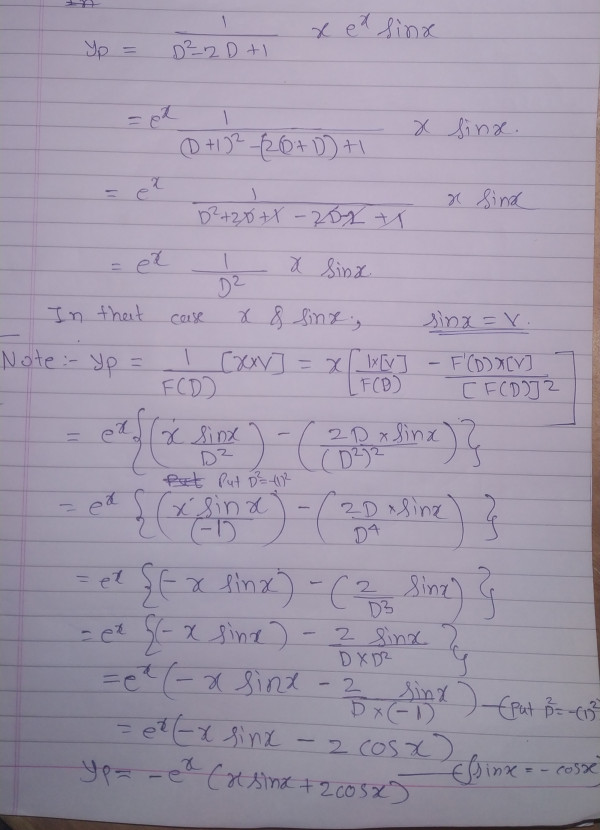 yp = 1/(D²-2D+1) x eˣ sinx
= eˣ 1/((D+1)² -(2(D+D))+1) x sinx.
= eˣ 1/(D²+2D+1 - 2D-2 +1) x sinx
= eˣ 1/D² x sinx.
In that case x & sinx., sinx = V.
Note:- yp = 1/F(D) [x×V] = x[1×[V]/F(D) - F'(D)×[V]/[F(D)]²]
= eˣ{(x sinx/D²) - (2D × sinx/(D²)²)}
Put D²=-(1)²
= eˣ {(x sinx/(-1)) - (2D × sinx/D⁴)}
= eˣ {(-x sinx) - (2/D³ sinx)}
= eˣ {(-x sinx) - 2 sinx/(D×D²)}
= eˣ(-x sinx - 2 sinx/(D×(-1))) —(Put D²=-(1)²
= eˣ(-x sinx - 2 cosx)
yp= -eˣ (x sinx + 2cosx) —(∫sinx = -cosx)